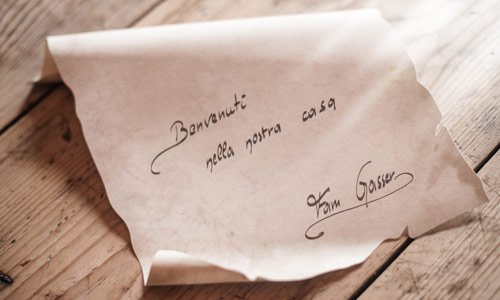 Benvenuti
nella nostra casa
Fam Gasser